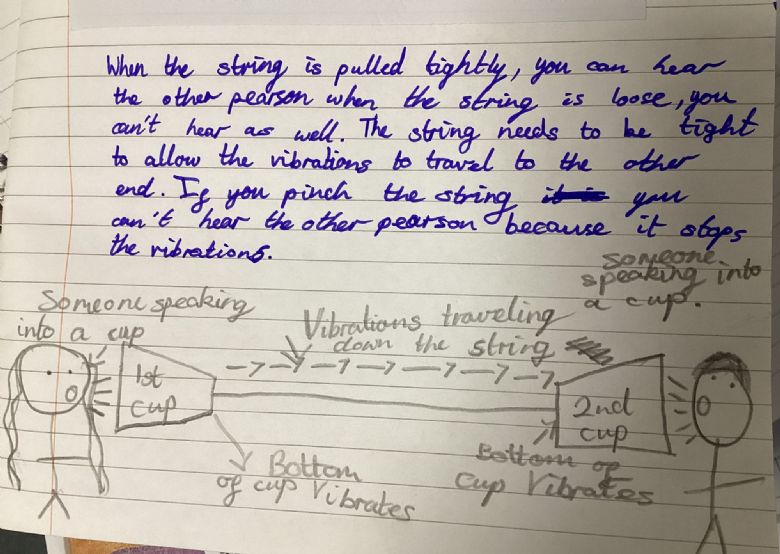 When the string is pulled tightly, you can hear
the other pearson when the string is loose, you
can't hear as well. The string needs to be tight
to allow the vibrations to travel to the other
end. If you pinch the string it is you
can't hear the other pearson because it stops
the vibrations.
someone
speaking into
a cup.
Someone speaking
into a cup
Vibrations traveling
down the string
1st
cup
2nd
cup
Bottom
of cup Vibrates
Bottom of
cup Vibrates